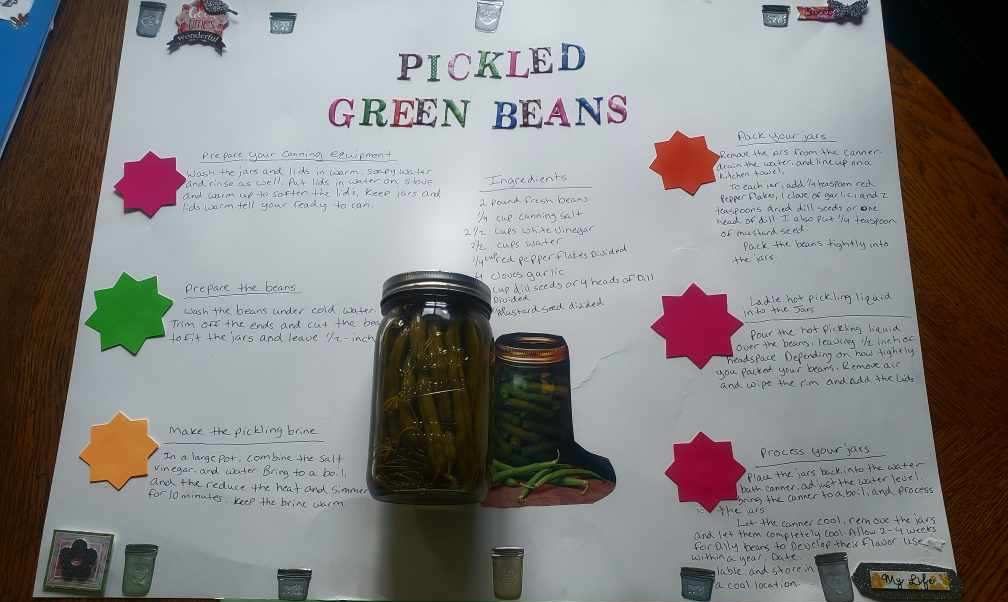 Life's
Wonderful
PICKLED
GREEN BEANS
Prepare your canning equipment
Wash the jars and lids in warm. soapy water
and rinse as well. Put lids in water on stove
and warm up to soften the lids. Keep jars and
lids warm tell your ready to can.
Prepare the beans
Wash the beans under cold water
Trim off the ends and cut the
to fit the jars and leave 1/2-inch
Make the pickling brine
In a large pot, combine the salt
vinegar. and water Bring to a boil,
and the reduce the heat and Simmer
for 10 minutes. Keep the brine warm.
Ingredients
2 pound fresh beans
1/4 cup canning salt
2 1/2 cups white vinegar
2 1/2 cups water
1/4 red pepper flakes Divided
4 cloves garlic
cup dill seeds or 4 heads of Dill
Divided
Mustard seed divided
Pack your jars
Remove the jars from the canner.
drain the water, and line up on a
kitchen towel,
To each jar, add 1/4 teaspoon red
Pepper flakes, 1 clove of garlic, and 2
teaspoons dried dill seeds or one
head of dill. I also put 1/4 teaspoon
of mustard seed
Pack the beans tightly into
the jars
Ladle hot pickling liquid
into the Jars
Pour the hot pickling liquid
over the beans, leaving 1/2 inch of
headspace Depending on how tightly
you packed your beans. Remove air
and wipe the rim and Add the lids
Process your jars
Place the jars back into the water
bath canner, adjust the water level
bring the canner to a boil, and process
the jars
Let the canner cool, remove the jars
and let them completely cool. Allow 2-4 weeks
for Dilly beans to Develop their flavor use
within a year. Date
lable and store in
a cool location.
My Life